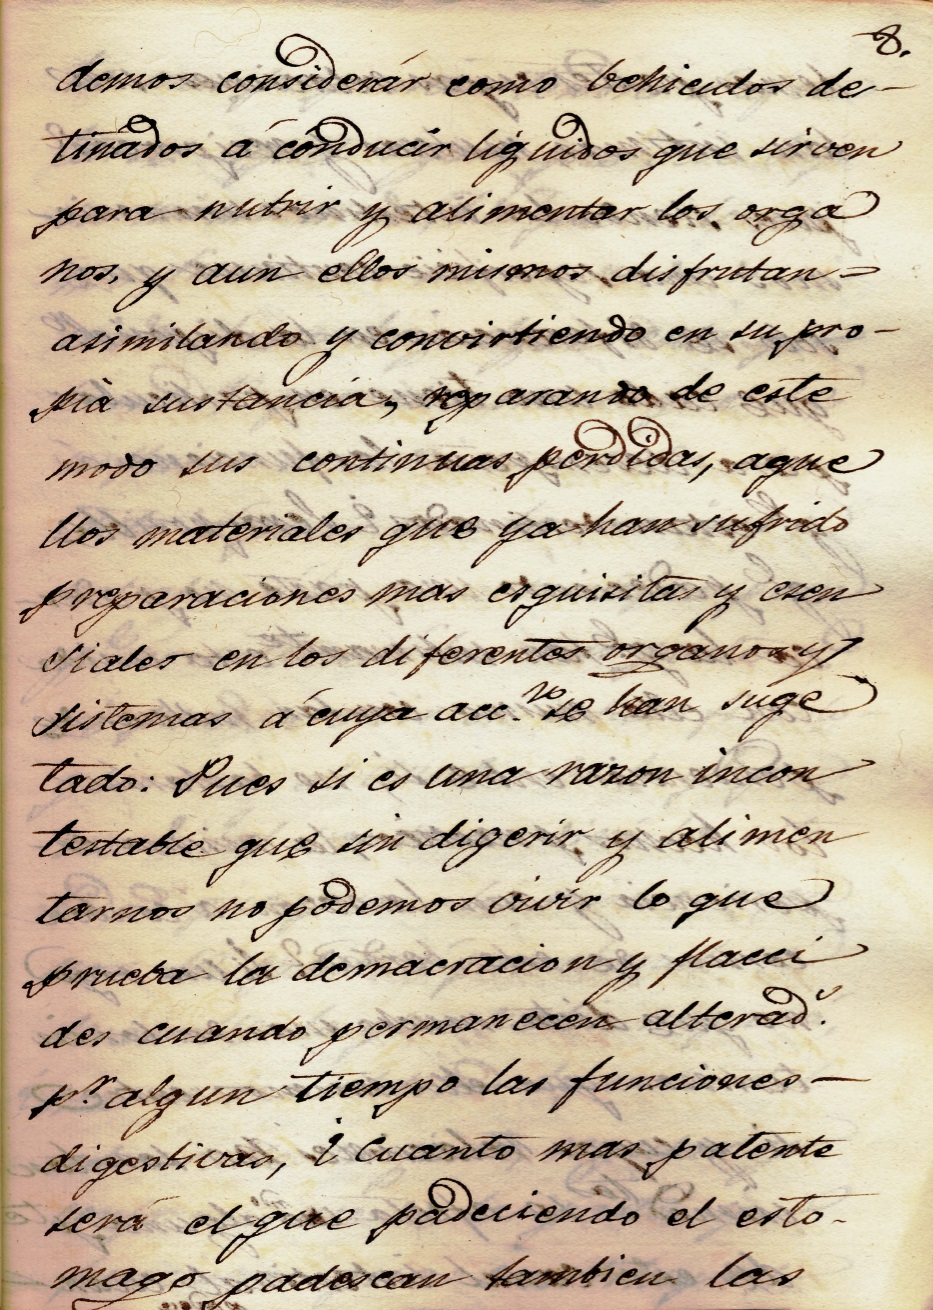 8.
demos considerár como behiculos de-
tinados á conducir liquidos que sirven
para nutrir y alimentar los orga
nos, y aun ellos mismos disfrutan-
asimilando y convirtiendo en su pro-
pia sustancia, reparando de este
modo sus continuas perdidas, aque
llos materiales que ya han sufrido
preparaciones mas esquisitas y esen
siales en los diferentes organos y
sistemas á cuya acc.n se han suge
tado: Pues si es una razon incon
testable que sin digerir y alimen
tarnos no podemos vivir lo que
prueba la demacracion y flacci
des cuando permanecen alterad.s
p.r algun tiempo las funciones-
digestivas, ¿Cuanto mas patente
será el que padeciendo el esto-
mago padescan tambien las